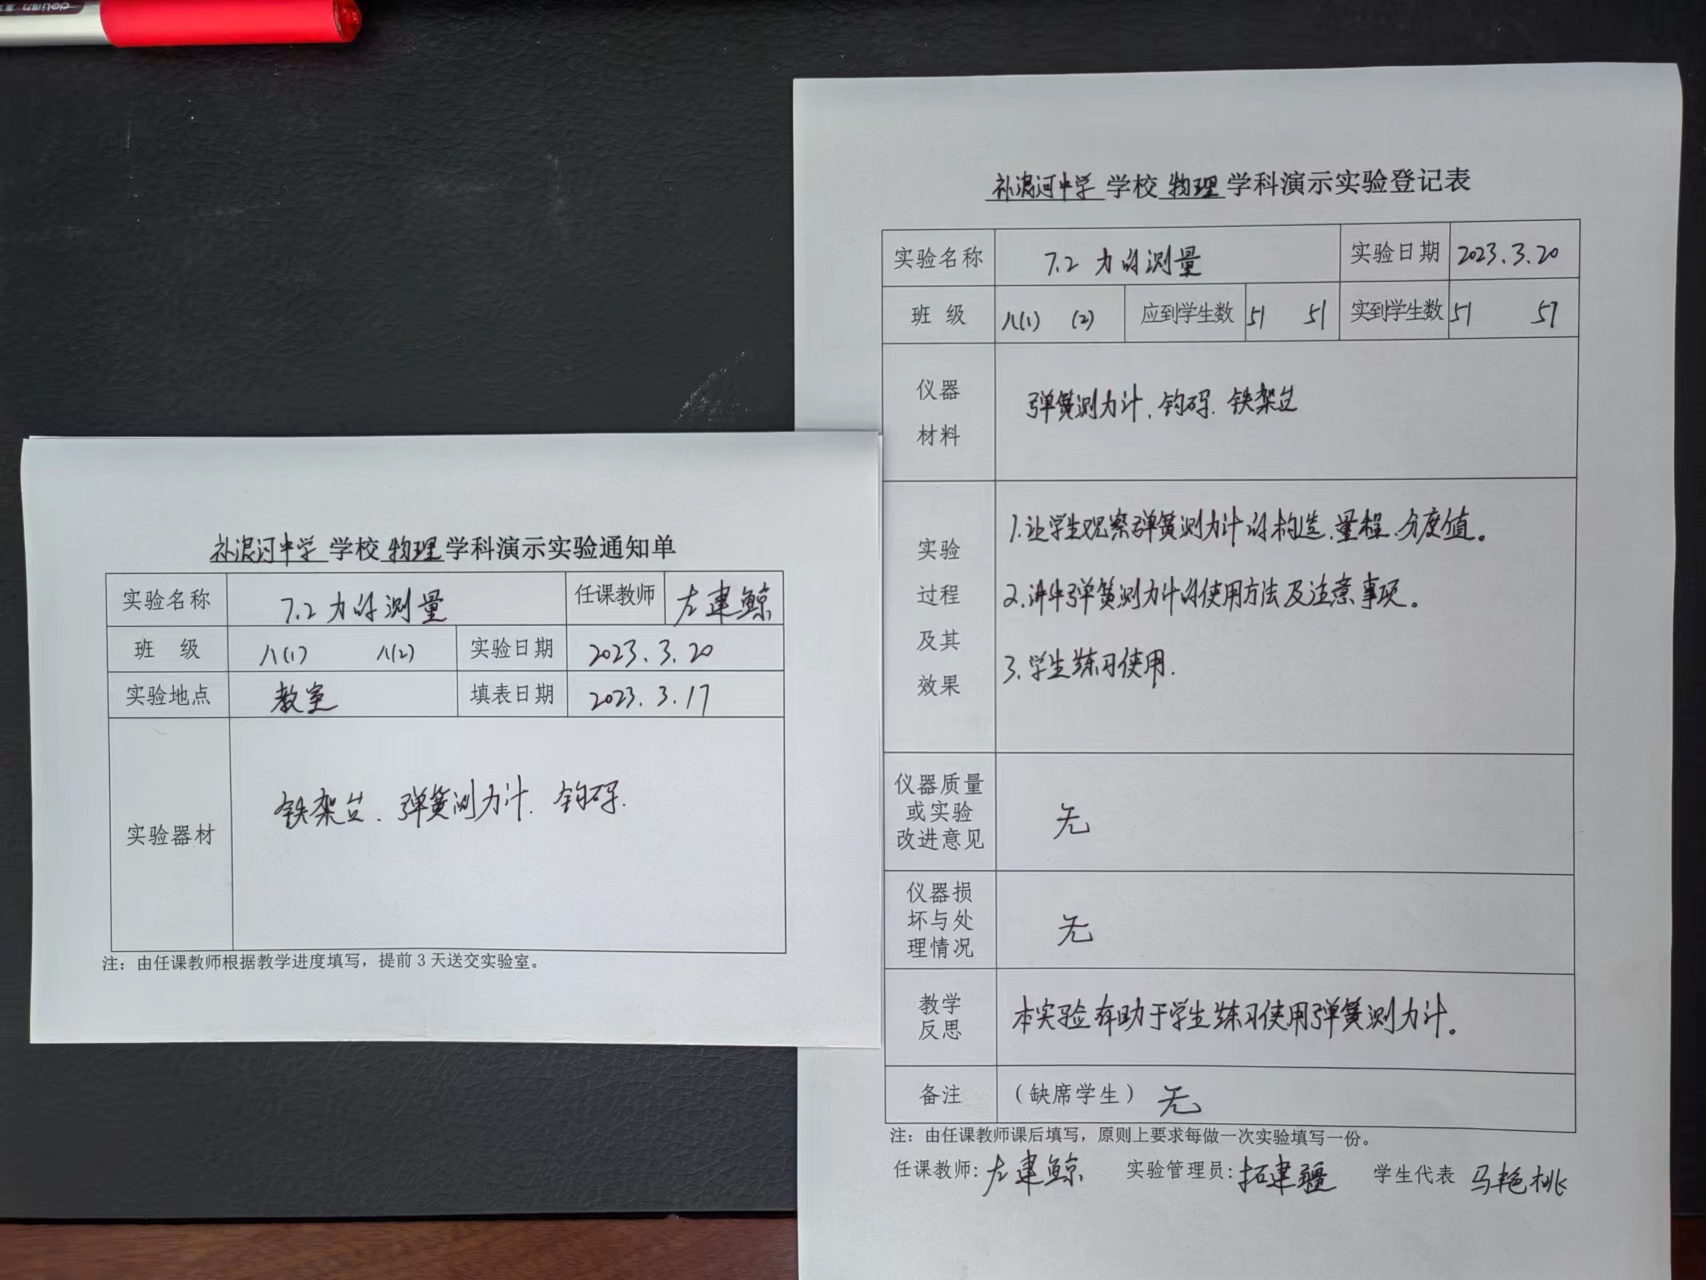 deli得力
补浪河中学 学校 物理 学科演示实验通知单
实验名称 7.2 力的测量 任课教师 左建鲸
班 级 八(1) 八(2) 实验日期 2023.3.20
实验地点 教室 填表日期 2023.3.17
实验器材 铁架台、弹簧测力计、钩码.
注：由任课教师根据教学进度填写，提前3天送交实验室。
补浪河中学 学校 物理 学科演示实验登记表
实验名称 7.2 力的测量 实验日期 2023.3.20
班 级 八(1) (2) 应到学生数 51 51 实到学生数 51 51
仪器
材料
弹簧测力计、钩码、铁架台
实验
过程
及其
效果
1.让学生观察弹簧测力计的构造、量程、分度值。
2.讲华弹簧测力计的使用方法及注意事项。
3.学生练习使用.
仪器质量
或实验
改进意见
无
仪器损
坏与处
理情况
无
教学
反思
本实验有助于学生练习使用弹簧测力计。
备注 （缺席学生）无
注：由任课教师课后填写，原则上要求每做一次实验填写一份。
任课教师:左建鲸 实验管理员:拓建疆 学生代表 马艳桃